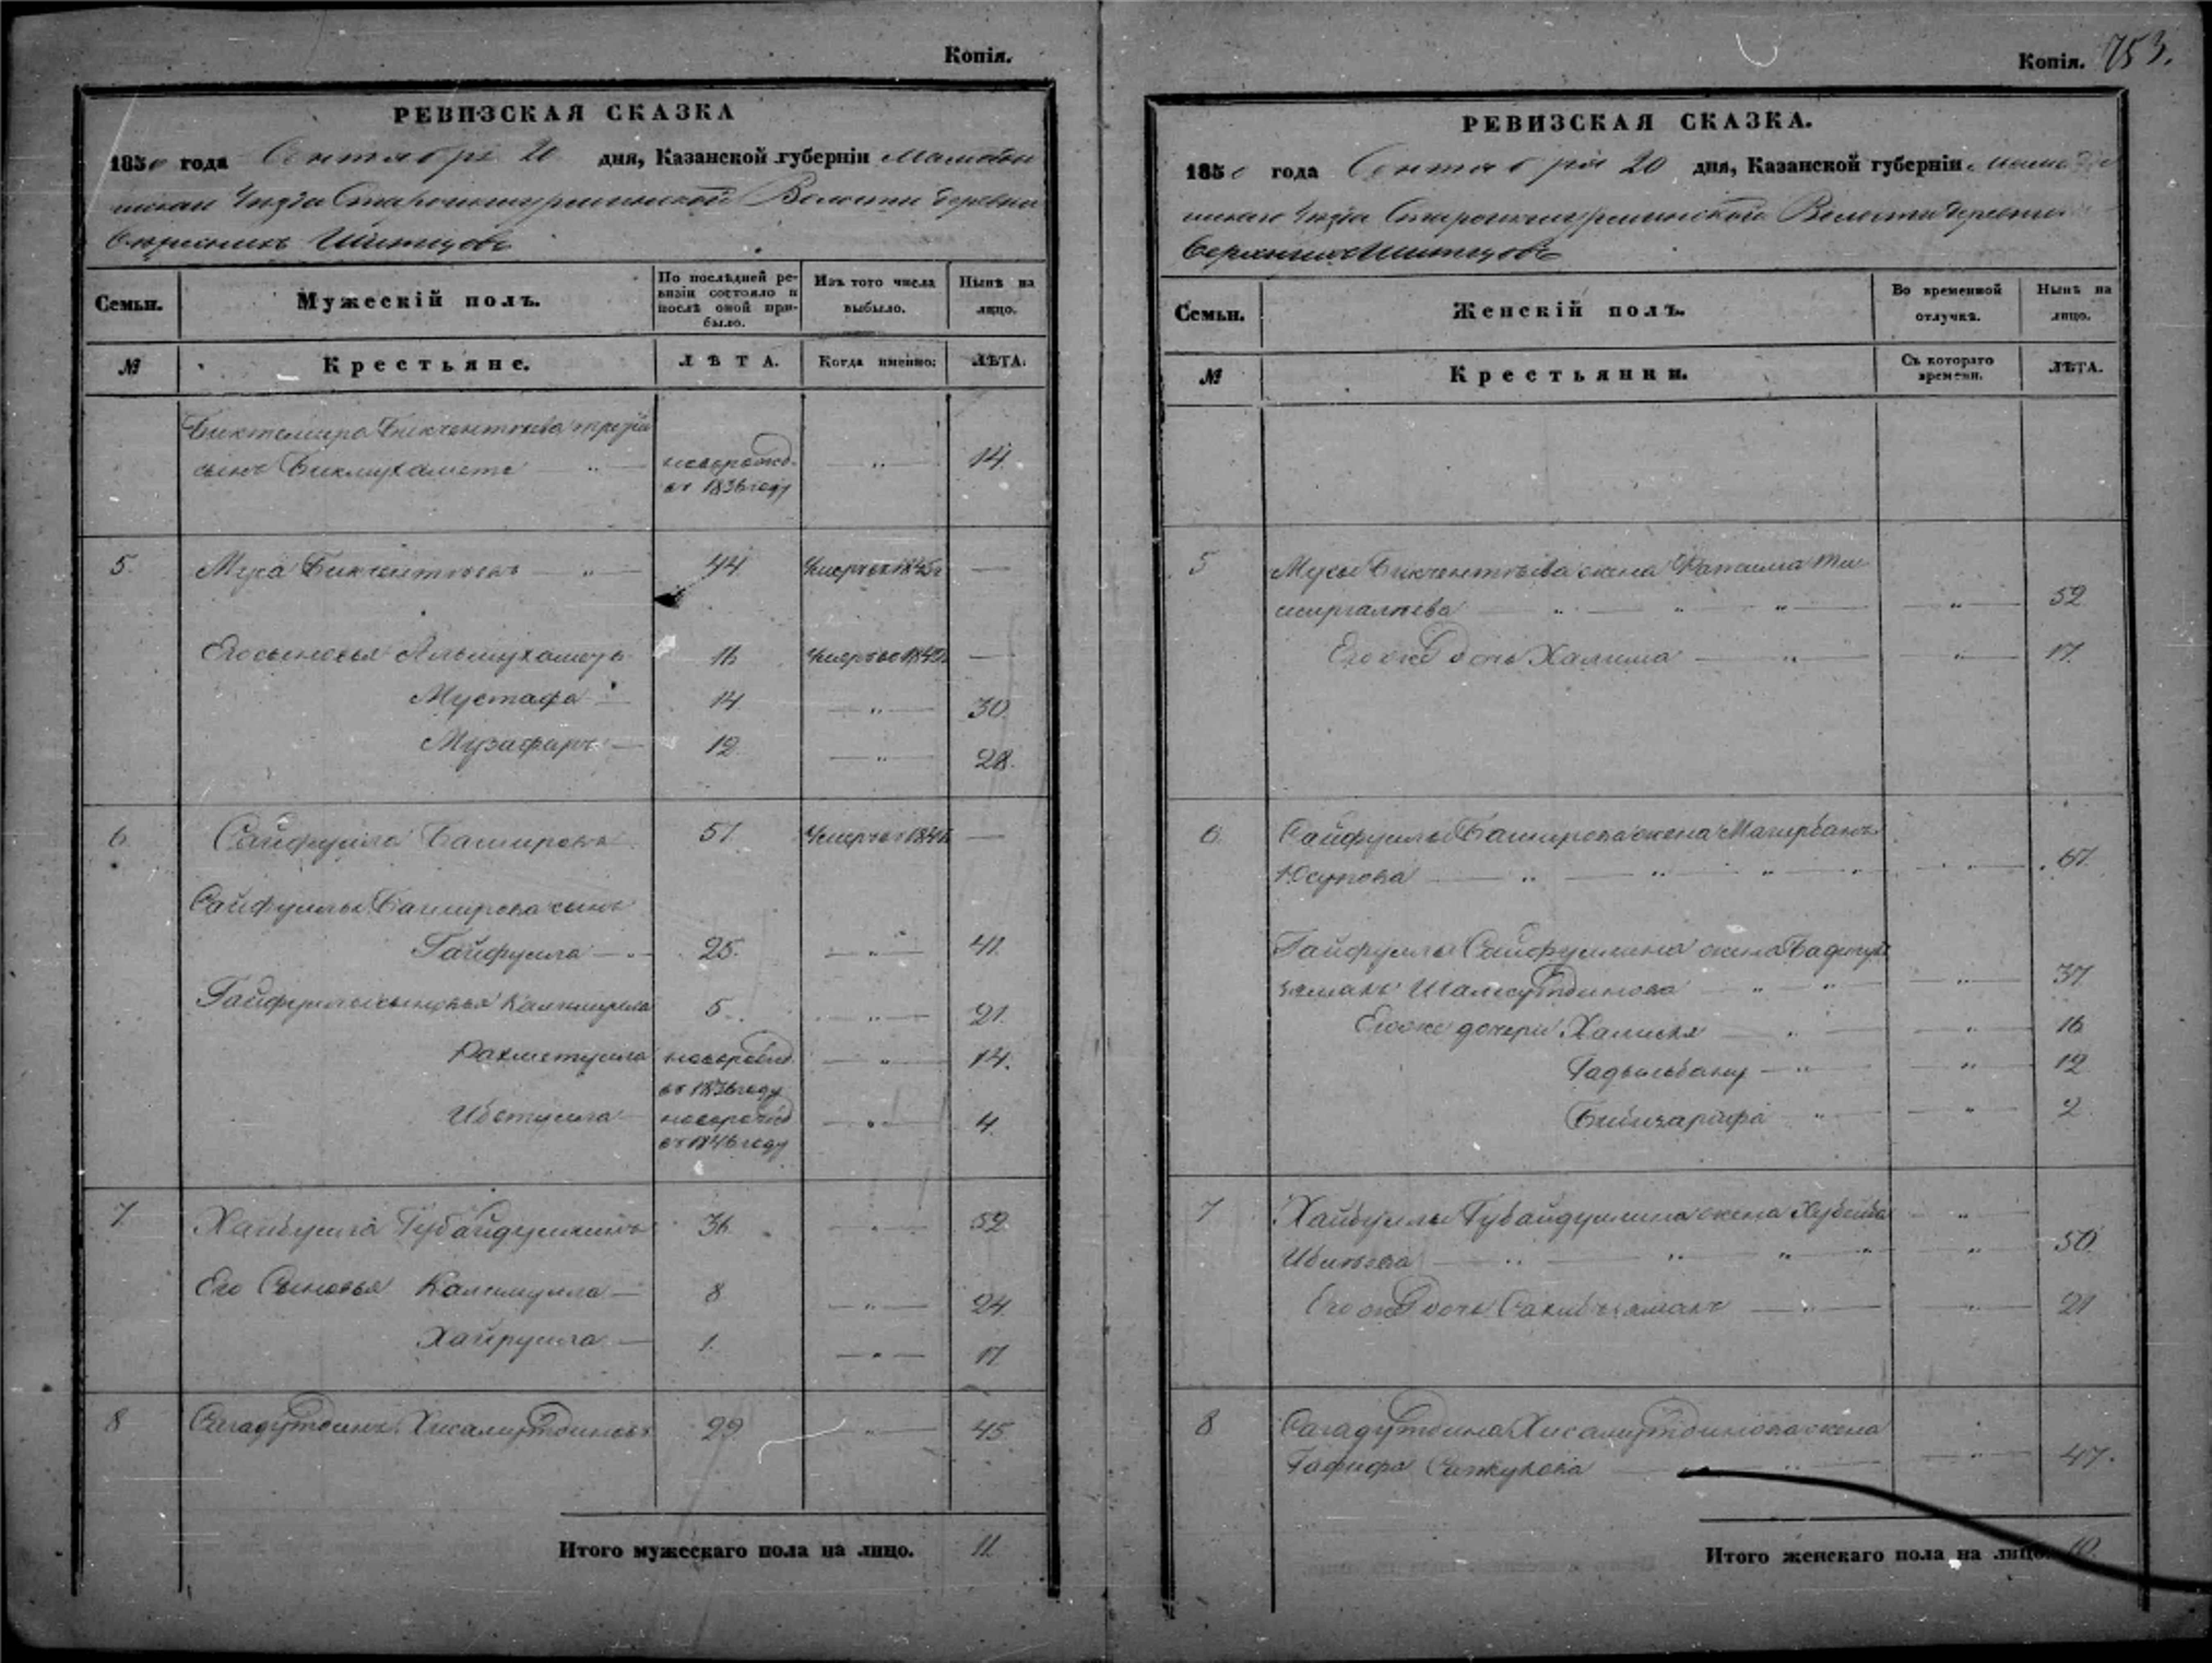 Копія.
РЕВИЗСКАЯ СКАЗКА
1850 года Сентября 20 дня, Казанской губерніи Мамадыш
скаго Уѣзда Старо Волости деревни
Верхнихъ Шитцовъ
Семьи.
Мужескій полъ.
По послѣдней ре-
визіи состояло и
послѣ оной при-
было.
Изъ того числа
выбыло.
Нынѣ на
лицо.
№
Крестьяне.
ЛѢТА.
Когда именно:
ЛѢТА.
Биктемира Бикчентаева
сынъ Бикмухаметъ — " — новорожд. — " — 14.
въ 1836 году
5. Муса Бикчентаевъ — " — 44 Умеръ въ 1845 —
Его сыновья Альмухаметъ 16 Умеръ въ 1842 —
Мустафа — 14 — " — 30.
Музафаръ — 12. — " — 28.
6 Сайфулла Башировъ 51. Умеръ въ —
Сайфуллы Баширова сынъ
Гайфулла — " — 25. — " — 41.
Гайфуллы сыновья Калимулла 5. — " — 21.
Рахметулла новорожд. — " — 14.
въ 1836 году
Ибетулла новорожд — " — 4.
въ 1846 году
7 Хайбулла Губайдуллинъ 36. " 52.
Его Сыновья Калимулла — 8 — " — 24.
Хайрулла — 1. — " — 17
8 Сагадутдинъ Хисамутдиновъ 29 — " — 45.
Итого мужескаго пола на лицо. 11
Копія. 753.
РЕВИЗСКАЯ СКАЗКА.
1850 года Сентября 20 дня, Казанской губерніи Мамады
скаго Уѣзда Старо Волости деревни
Верхнихъ Шитцовъ
Семьи.
Женскій полъ.
Во временной
отлучкѣ.
Нынѣ на
лицо.
№
Крестьянки.
Съ котораго
времени.
ЛѢТА.
5 Мусы Бикчентаева жена Фатима
— " — " — " — — " — 52
Его же дочь Халима — " — — " — 17.
6. Сайфуллы Баширова жена Магирбану
Юсупова — " — " — " — " — " — 67.
Гайфуллы Сайфуллина жена
Шамсутдинова — " — " — — " — 37
Его же дочери Халися — " — — " — 16
Гадильбану — " — — " — 12
Бибизарифа — " — — " — 2
7 Хайбуллы Губайдуллина жена Хубейба — " —
— " — " — " — " 50.
Его же дочь — " — — " — 21
8 Сагадутдина Хисамутдинова жена
Гафифа — " — — " — 47.
Итого женскаго пола на лицо. 10.